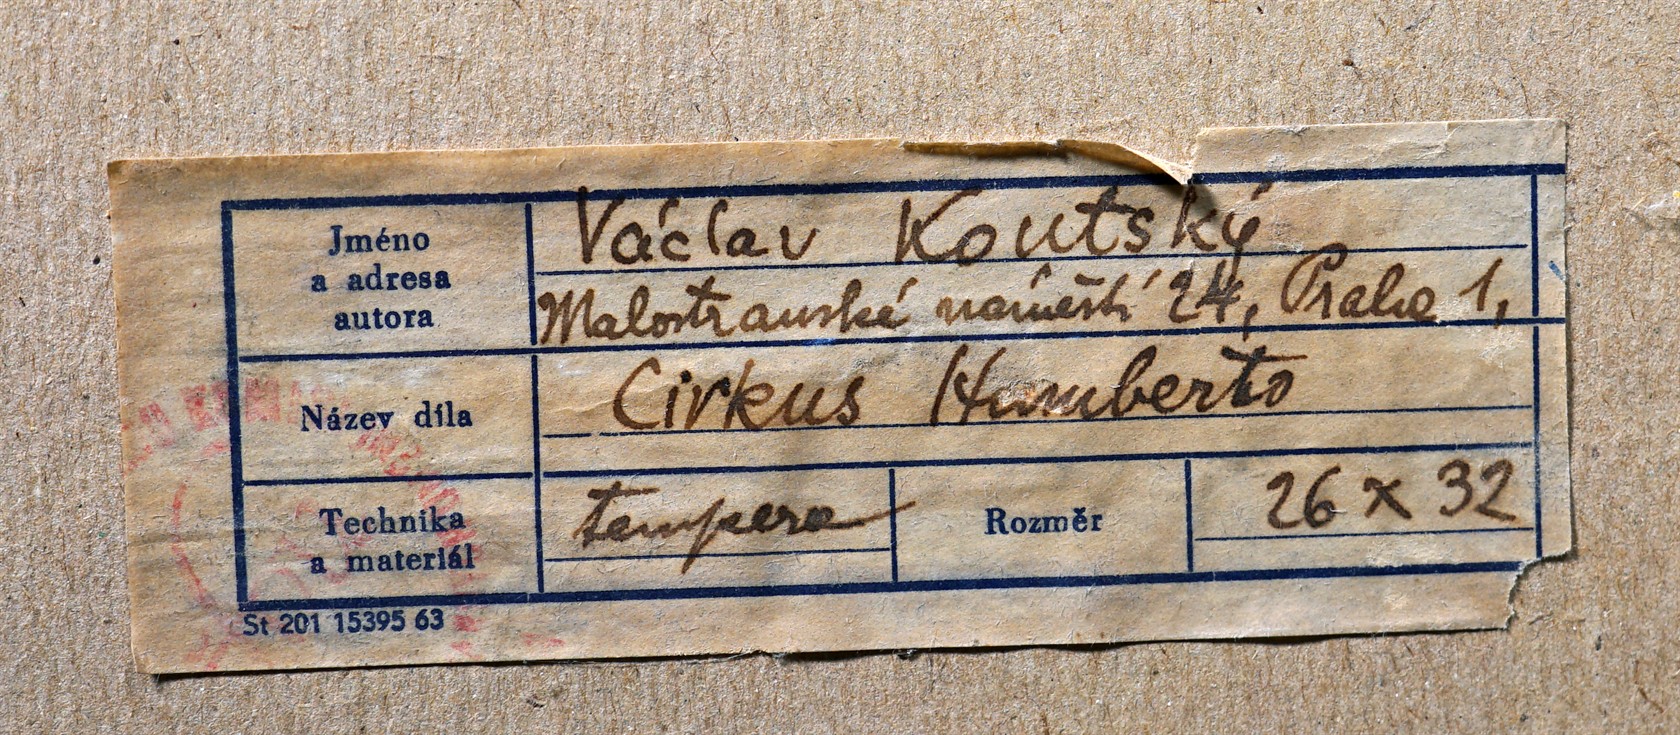 Jméno
a adresa
autora
Václav Koutský
Malostranské náměstí 24, Praha 1,
Název díla
Cirkus Humberto
Technika
a materiál
tempera
Rozměr
26 x 32
St 201 15395 63